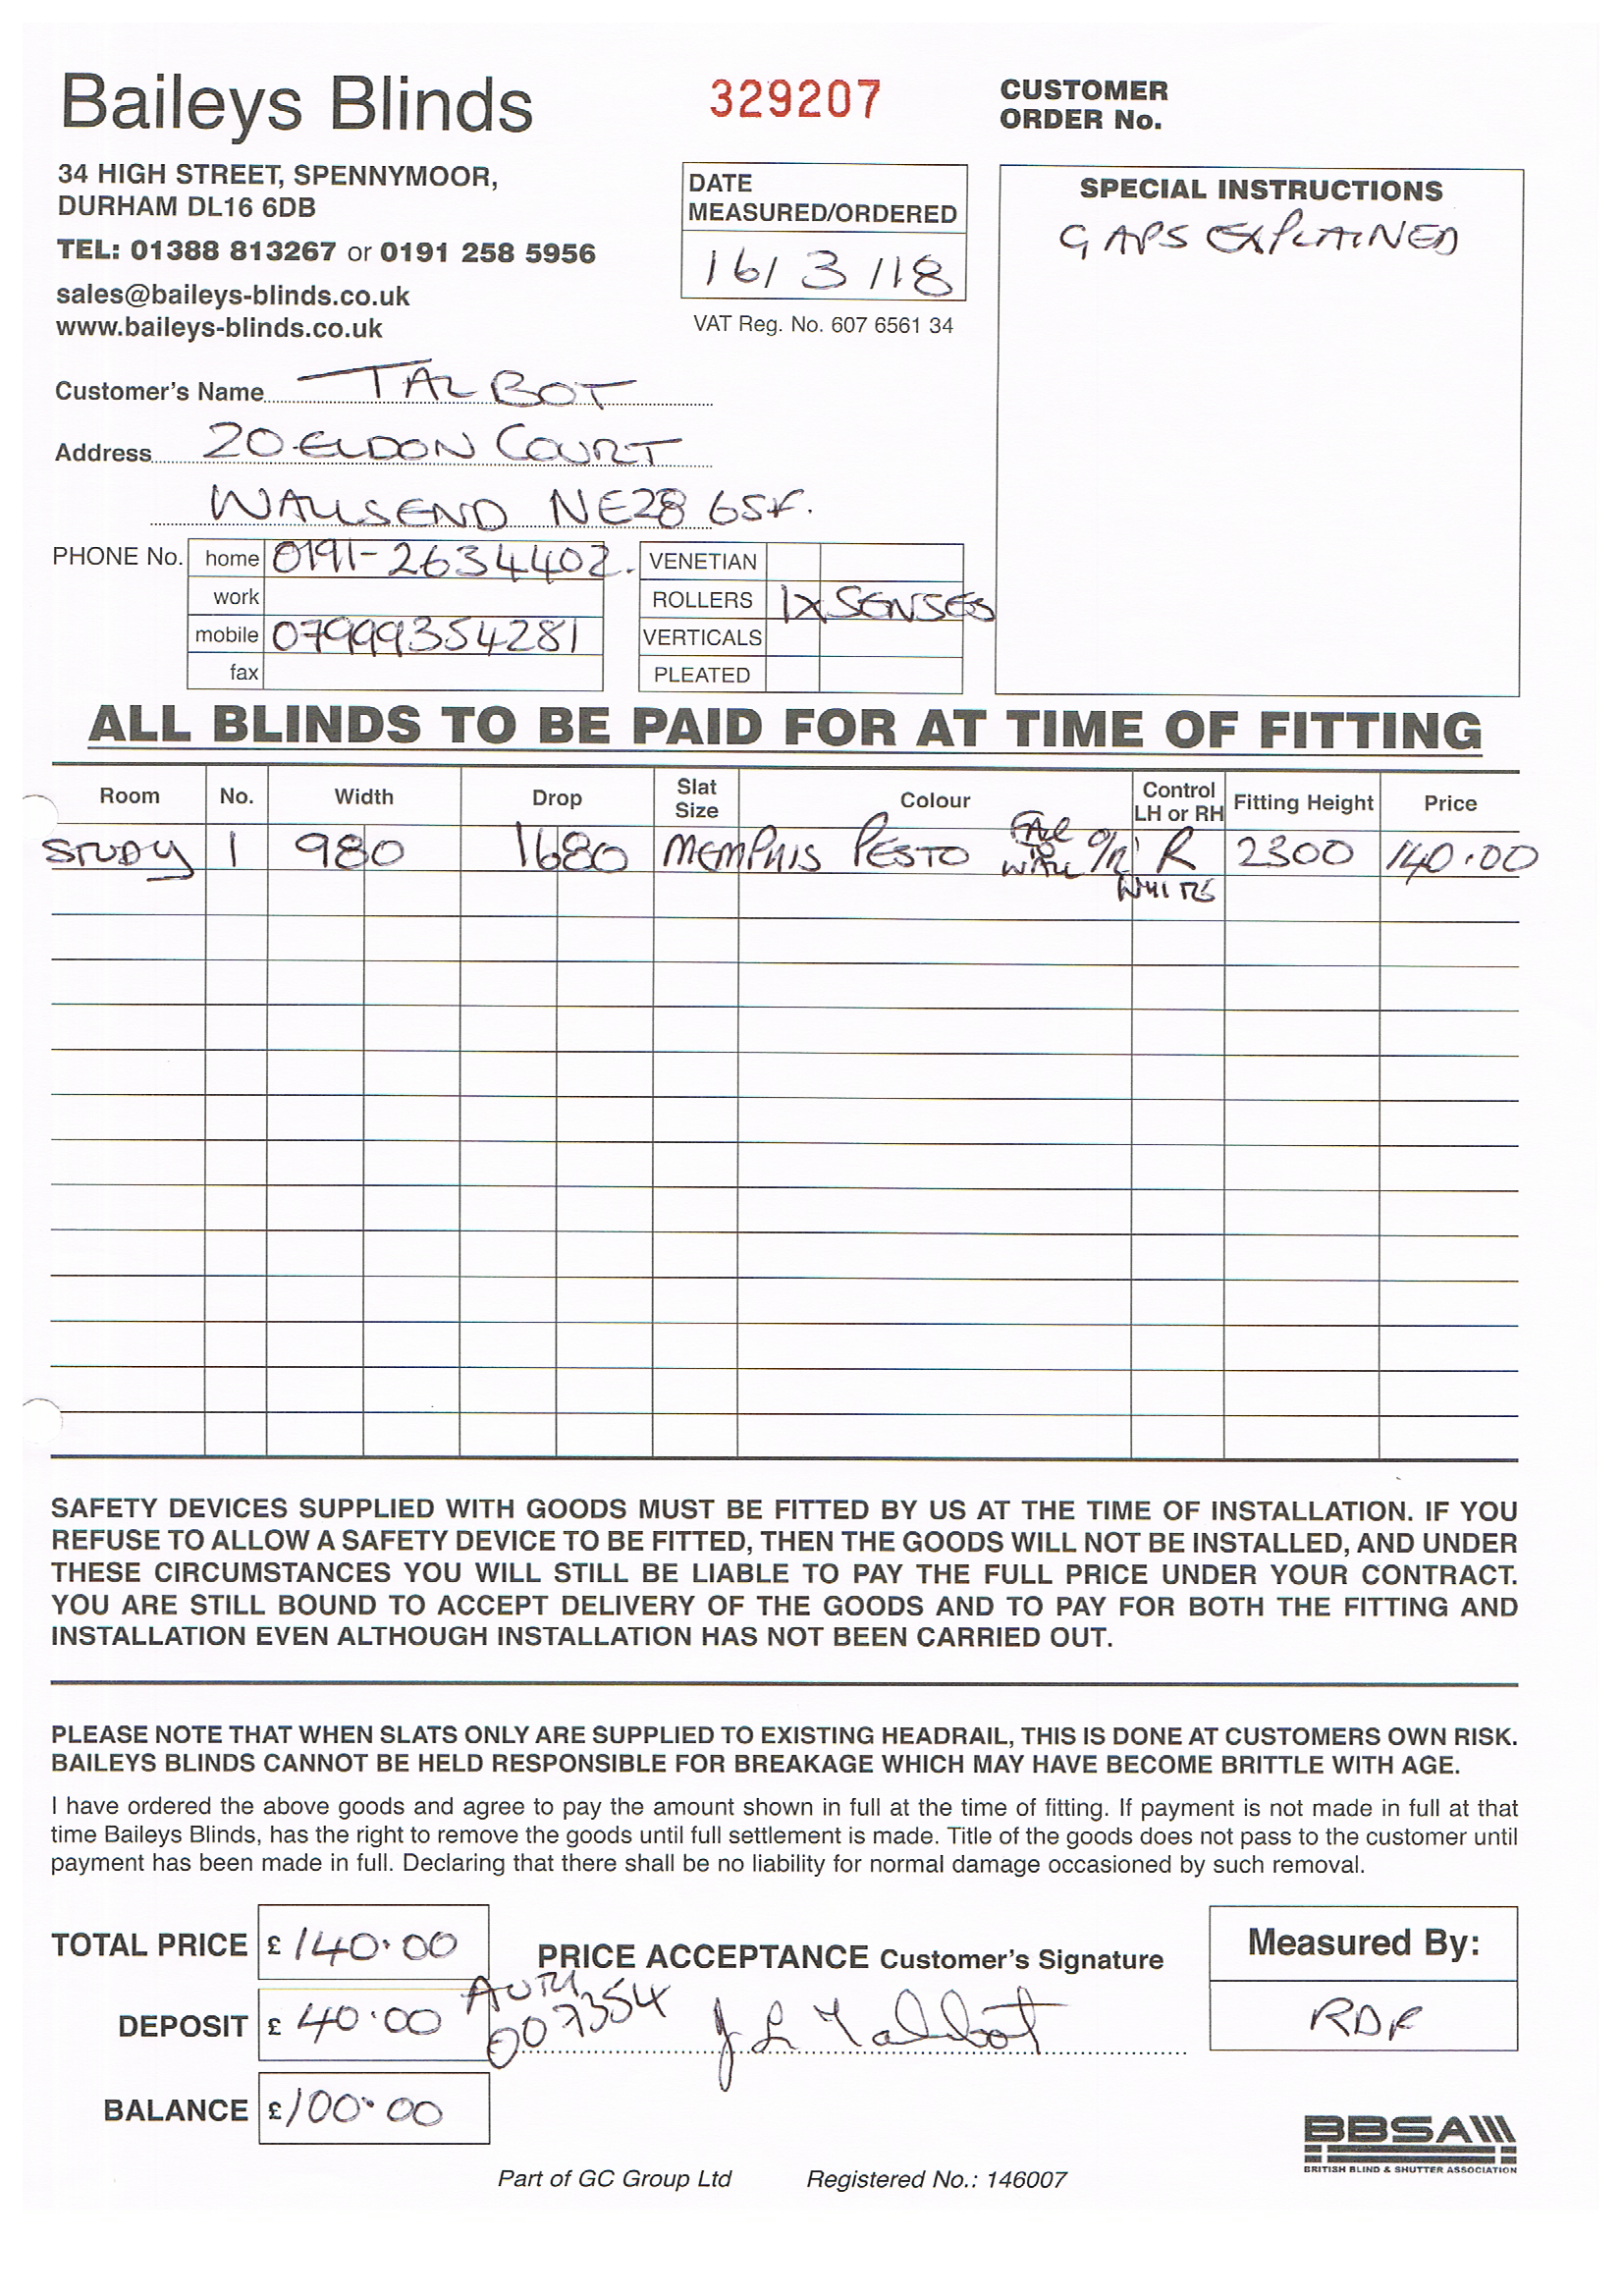 Baileys Blinds
329207
CUSTOMER
ORDER No.
34 HIGH STREET, SPENNYMOOR,
DURHAM DL16 6DB
TEL: 01388 813267 or 0191 258 5956
sales@baileys-blinds.co.uk
www.baileys-blinds.co.uk
DATE
MEASURED/ORDERED
16/3/18
VAT Reg. No. 607 6561 34
SPECIAL INSTRUCTIONS
GAPS EXPLAINED
Customer's Name TALBOT
Address 20 ELDON COURT
WALLSEND NE28 6SF.
PHONE No. home 0191-2634402.
work
mobile 07999354281
fax
VENETIAN
ROLLERS 1x SENSES
VERTICALS
PLEATED
ALL BLINDS TO BE PAID FOR AT TIME OF FITTING
Room No. Width Drop Slat Size Colour Control LH or RH Fitting Height Price
STUDY 1 980 1680 MEMPHIS PESTO WALL R 2300 140.00
WHITE
SAFETY DEVICES SUPPLIED WITH GOODS MUST BE FITTED BY US AT THE TIME OF INSTALLATION. IF YOU
REFUSE TO ALLOW A SAFETY DEVICE TO BE FITTED, THEN THE GOODS WILL NOT BE INSTALLED, AND UNDER
THESE CIRCUMSTANCES YOU WILL STILL BE LIABLE TO PAY THE FULL PRICE UNDER YOUR CONTRACT.
YOU ARE STILL BOUND TO ACCEPT DELIVERY OF THE GOODS AND TO PAY FOR BOTH THE FITTING AND
INSTALLATION EVEN ALTHOUGH INSTALLATION HAS NOT BEEN CARRIED OUT.
PLEASE NOTE THAT WHEN SLATS ONLY ARE SUPPLIED TO EXISTING HEADRAIL, THIS IS DONE AT CUSTOMERS OWN RISK.
BAILEYS BLINDS CANNOT BE HELD RESPONSIBLE FOR BREAKAGE WHICH MAY HAVE BECOME BRITTLE WITH AGE.
I have ordered the above goods and agree to pay the amount shown in full at the time of fitting. If payment is not made in full at that
time Baileys Blinds, has the right to remove the goods until full settlement is made. Title of the goods does not pass to the customer until
payment has been made in full. Declaring that there shall be no liability for normal damage occasioned by such removal.
TOTAL PRICE £ 140.00
DEPOSIT £ 40.00
BALANCE £ 100.00
PRICE ACCEPTANCE Customer's Signature
AUTH
007354
J L Talbot
Measured By:
RDF
BBSA
BRITISH BLIND & SHUTTER ASSOCIATION
Part of GC Group Ltd Registered No.: 146007